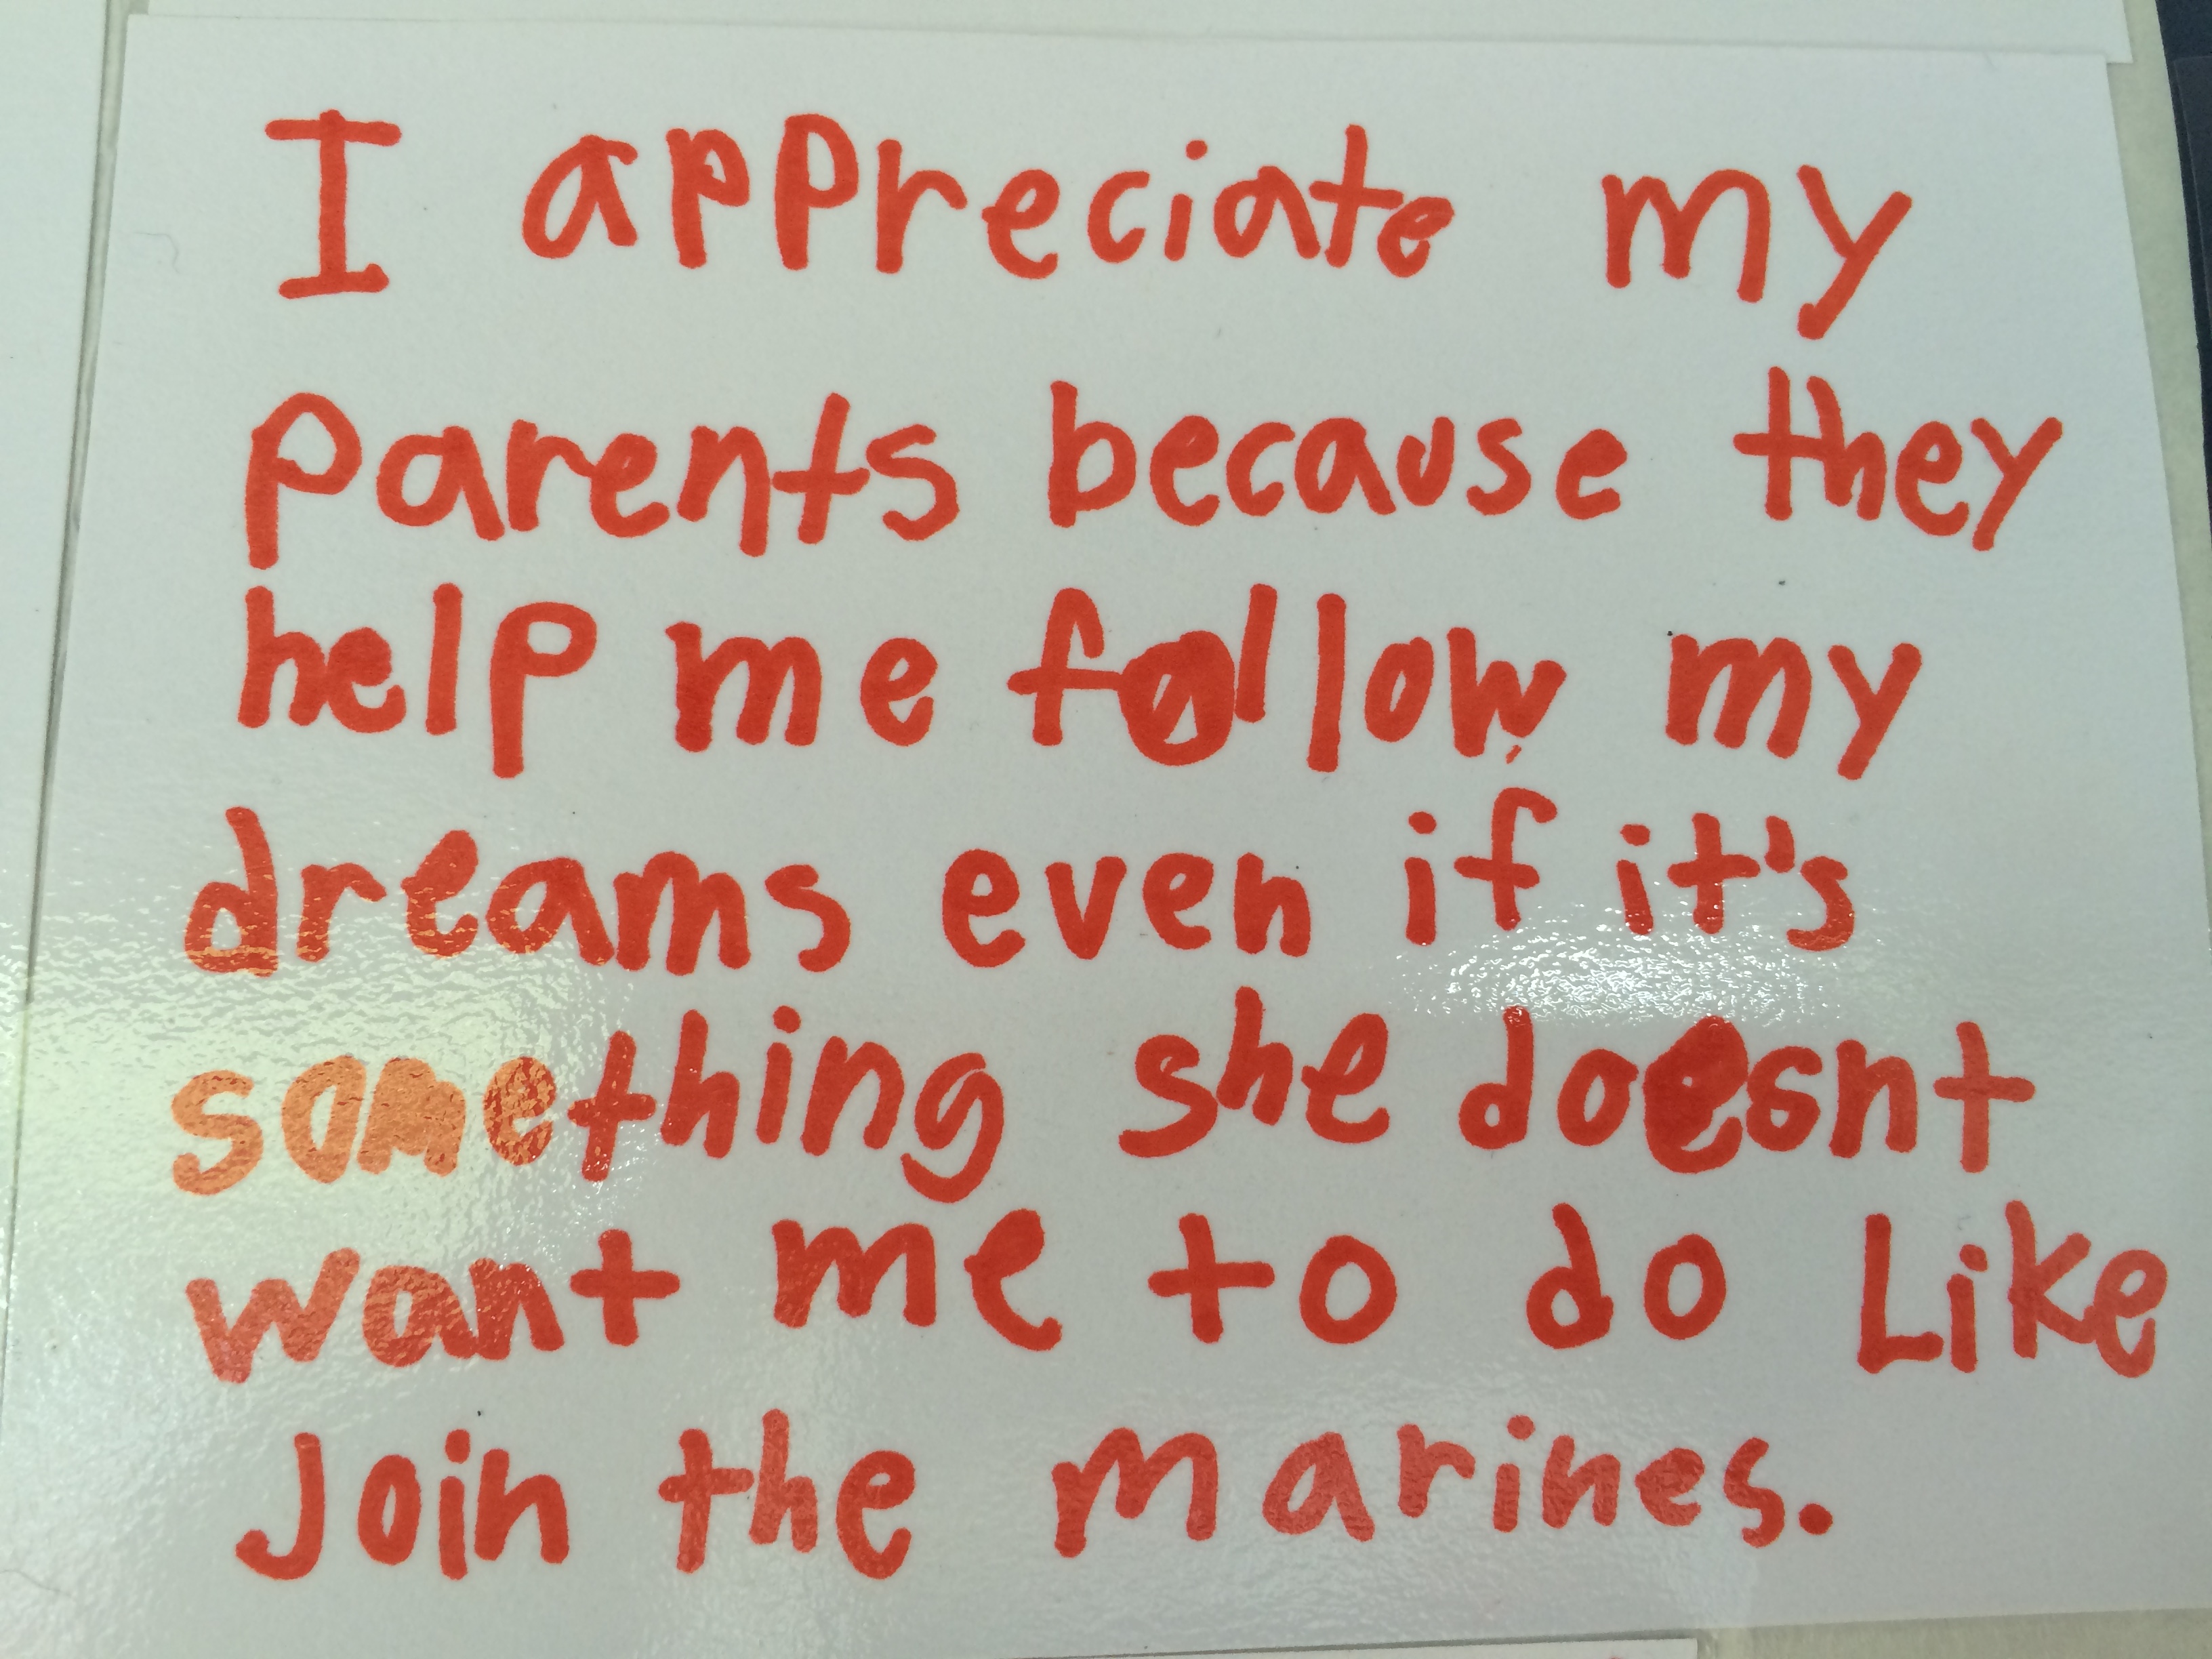 I appreciate my
parents because they
help me follow my
dreams even if it's
something she doesnt
want me to do Like
Join the marines.